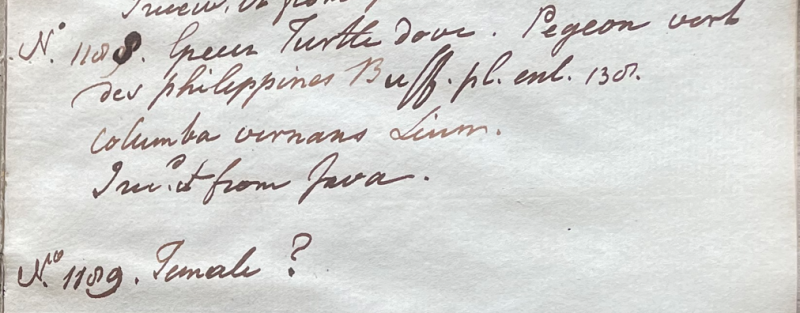 No. 1188. Green Turtle dove. Pegeon vert
des philippines Buff. pl. enl. 138.
Columba vernans Linn.
from Java.
No. 1189. Female ?